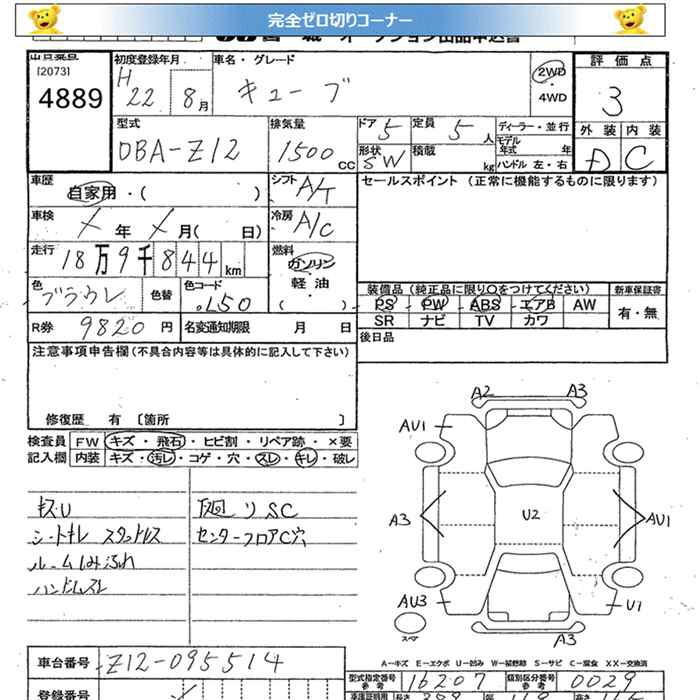 完全ゼロ切りコーナー
[2073]
4889
初度登録年月
H
22 8月
車名・グレード
キューブ
2WD
・
4WD
評価点
3
外装 内装
D C
型式
DBA-Z12
排気量
1500 CC
ドア 5
形状 SW
定員 5 人
積載 kg
ディーラー・並行
モデル年式 年
ハンドル 左・右
車歴
自家用・( )
シフト A/T
セールスポイント (正常に機能するものに限ります)
車検
年 月( 日)
冷房 A/C
走行
18万9千844 km
燃料
ガソリン
・
軽油
・
( )
色 色替
色コード
L50
R券 9820 円
名変通知期限 月 日
装備品 (純正品に限り○をつけてください)
PS PW ABS エアB AW
SR ナビ TV カワ
新車保証書
有・無
後日品
注意事項申告欄(不具合内容等は具体的に記入して下さい)
修復歴 有 〔箇所 〕
検査員
記入欄
FW キズ・飛石・ヒビ割・リペア跡・×要
内装 キズ・汚レ・コゲ・穴・スレ・キレ・破レ
キズU
シートキレ スタットレス
下廻リSC
センターフロアC穴
A2 A3
AU1
A3 U2 AU1
AU3 U1
スペア
A3
A-キズ E-エクボ U-凹み W-補修跡 S-サビ C-腐食 XX-交換済
車台番号 Z12-095514
型式指定番号
参考
16207
類別区分番号
参考
0029
登録番号